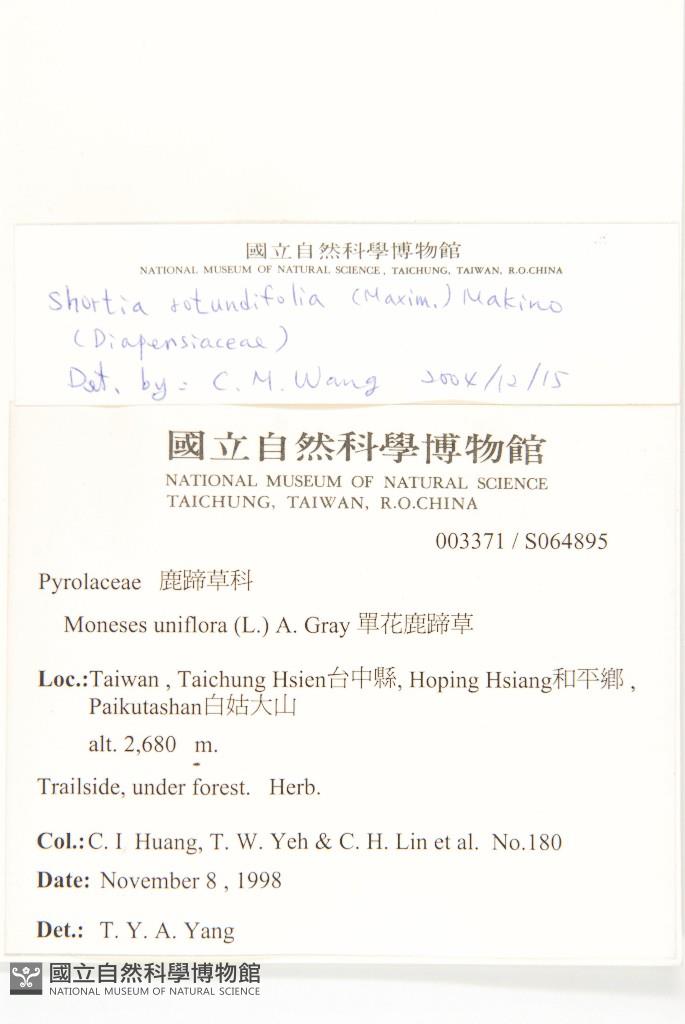 國立自然科學博物館
NATIONAL MUSEUM OF NATURAL SCIENCE, TAICHUNG, TAIWAN, R.O.CHINA
Shortia rotundifolia (Maxim.) Makino
(Diapensiaceae)
Det. by : C. M. Wang 2004/12/15
國立自然科學博物館
NATIONAL MUSEUM OF NATURAL SCIENCE
TAICHUNG, TAIWAN, R.O.CHINA
003371 / S064895
Pyrolaceae 鹿蹄草科
Moneses uniflora (L.) A. Gray 單花鹿蹄草
Loc.:Taiwan , Taichung Hsien台中縣, Hoping Hsiang和平鄉 ,
Paikutashan白姑大山
alt. 2,680 m.
Trailside, under forest. Herb.
Col.: C. I Huang, T. W. Yeh & C. H. Lin et al. No.180
Date: November 8 , 1998
Det.: T. Y. A. Yang
國立自然科學博物館
NATIONAL MUSEUM OF NATURAL SCIENCE